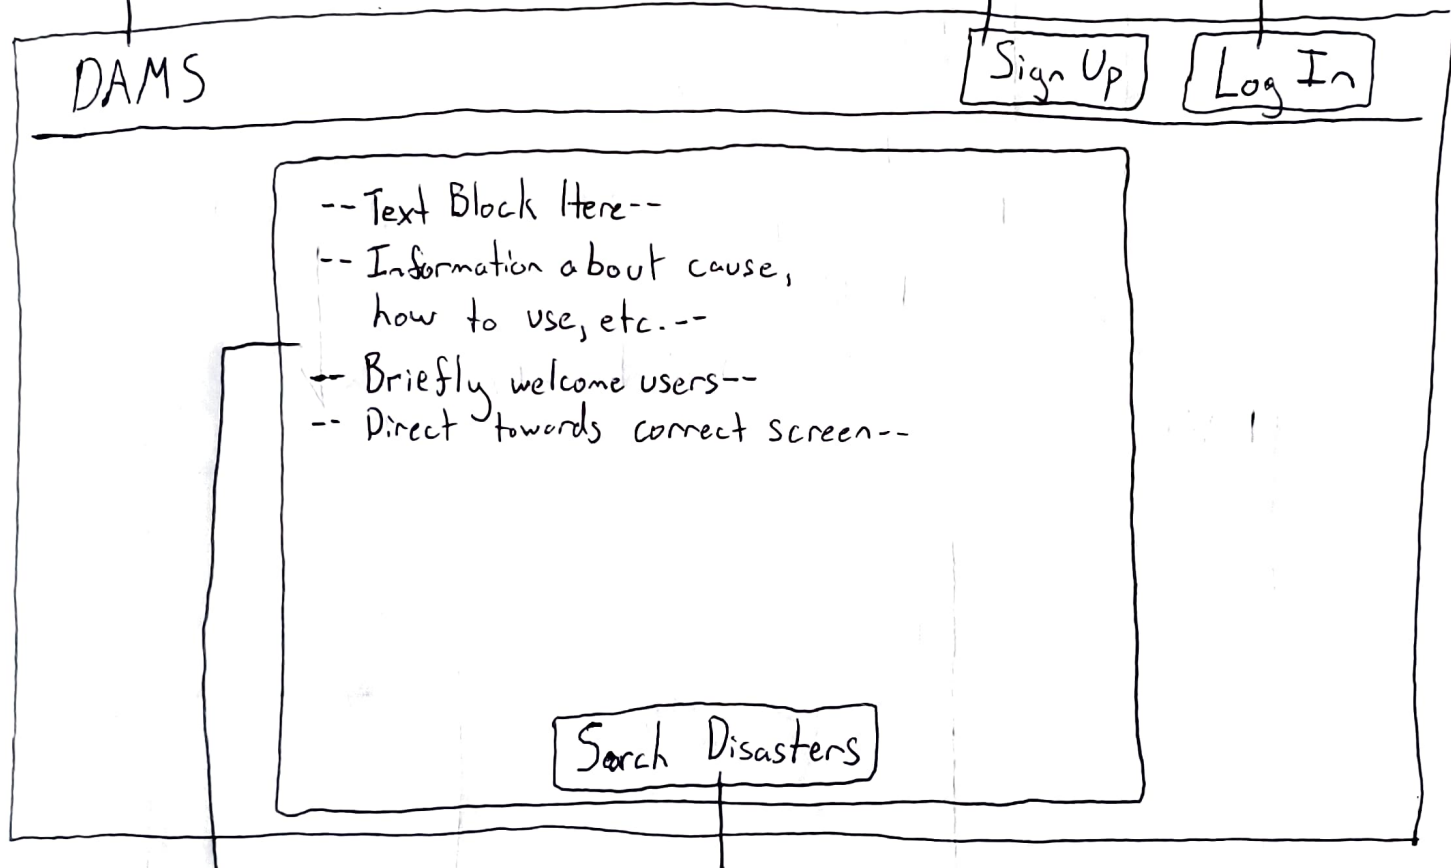 DAMS
Sign Up
Log In
--Text Block Here--
-- Information about cause,
how to use, etc.--
-- Briefly welcome users--
-- Direct towards correct screen--
Search Disasters